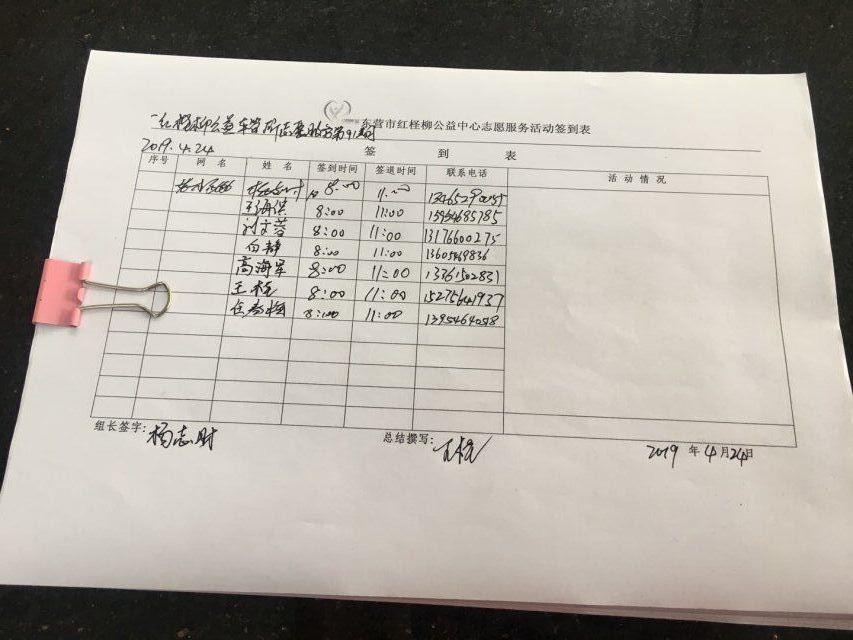 东营市红柽柳公益中心志愿服务活动签到表
红柽柳公益车管所志愿服务第91期
2019.4.24 签 到 表
序号 网 名 姓 名 签到时间 签退时间 联系电话 活 动 情 况
8:00 11:00
8:00 11:00 15954685785
刘文蓉 8:00 11:00 13176600275
白静 8:00 11:00 13605469836
高海军 8:00 11:00 13761502831
王栓 8:00 11:00 15275641937
8:00 11:00 13954640518
组长签字: 杨志时 总结撰写: 王栓 2019 年 4 月 24 日